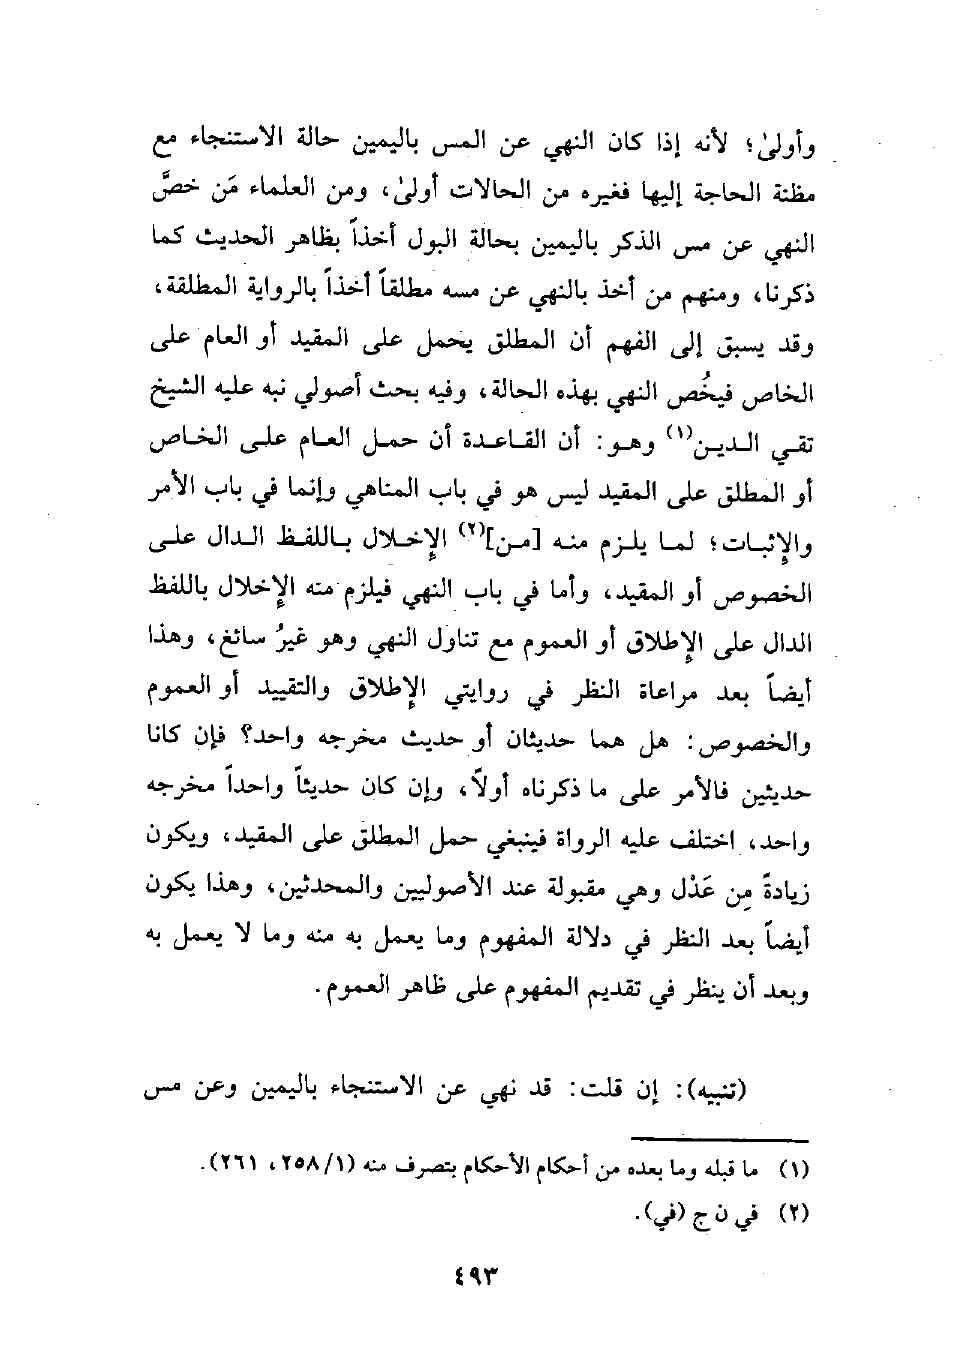 وأولىٰ؛ لأنه إذا كان النهي عن المس باليمين حالة الاستنجاء مع
مظنة الحاجة إليها فغيره من الحالات أولىٰ، ومن العلماء مَن خصَّ
النهي عن مس الذكر باليمين بحالة البول أخذاً بظاهر الحديث كما
ذكرنا، ومنهم من أخذ بالنهي عن مسه مطلقاً أخذاً بالرواية المطلقة،
وقد يسبق إلى الفهم أن المطلق يحمل على المقيد أو العام على
الخاص فيخُص النهي بهذه الحالة، وفيه بحث أصولي نبه عليه الشيخ
تقي الدين(١) وهو: أن القاعدة أن حمل العام على الخاص
أو المطلق على المقيد ليس هو في باب المناهي وإنما في باب الأمر
والإثبات؛ لما يلزم منه [من](٢) الإخلال باللفظ الدال على
الخصوص أو المقيد، وأما في باب النهي فيلزم منه الإخلال باللفظ
الدال على الإطلاق أو العموم مع تناول النهي وهو غيرُ سائغ، وهذا
أيضاً بعد مراعاة النظر في روايتي الإطلاق والتقييد أو العموم
والخصوص: هل هما حديثان أو حديث مخرجه واحد؟ فإن كانا
حديثين فالأمر على ما ذكرناه أولاً، وإن كان حديثاً واحداً مخرجه
واحد، اختلف عليه الرواة فينبغي حمل المطلق على المقيد، ويكون
زيادةً من عَدْل وهي مقبولة عند الأصوليين والمحدثين، وهذا يكون
أيضاً بعد النظر في دلالة المفهوم وما يعمل به منه وما لا يعمل به
وبعد أن ينظر في تقديم المفهوم على ظاهر العموم.
(تنبيه): إن قلت: قد نهي عن الاستنجاء باليمين وعن مس
(١) ما قبله وما بعده من أحكام الأحكام بتصرف منه (١/٢٥٨، ٢٦١).
(٢) في ن ج (في).
٤٩٣